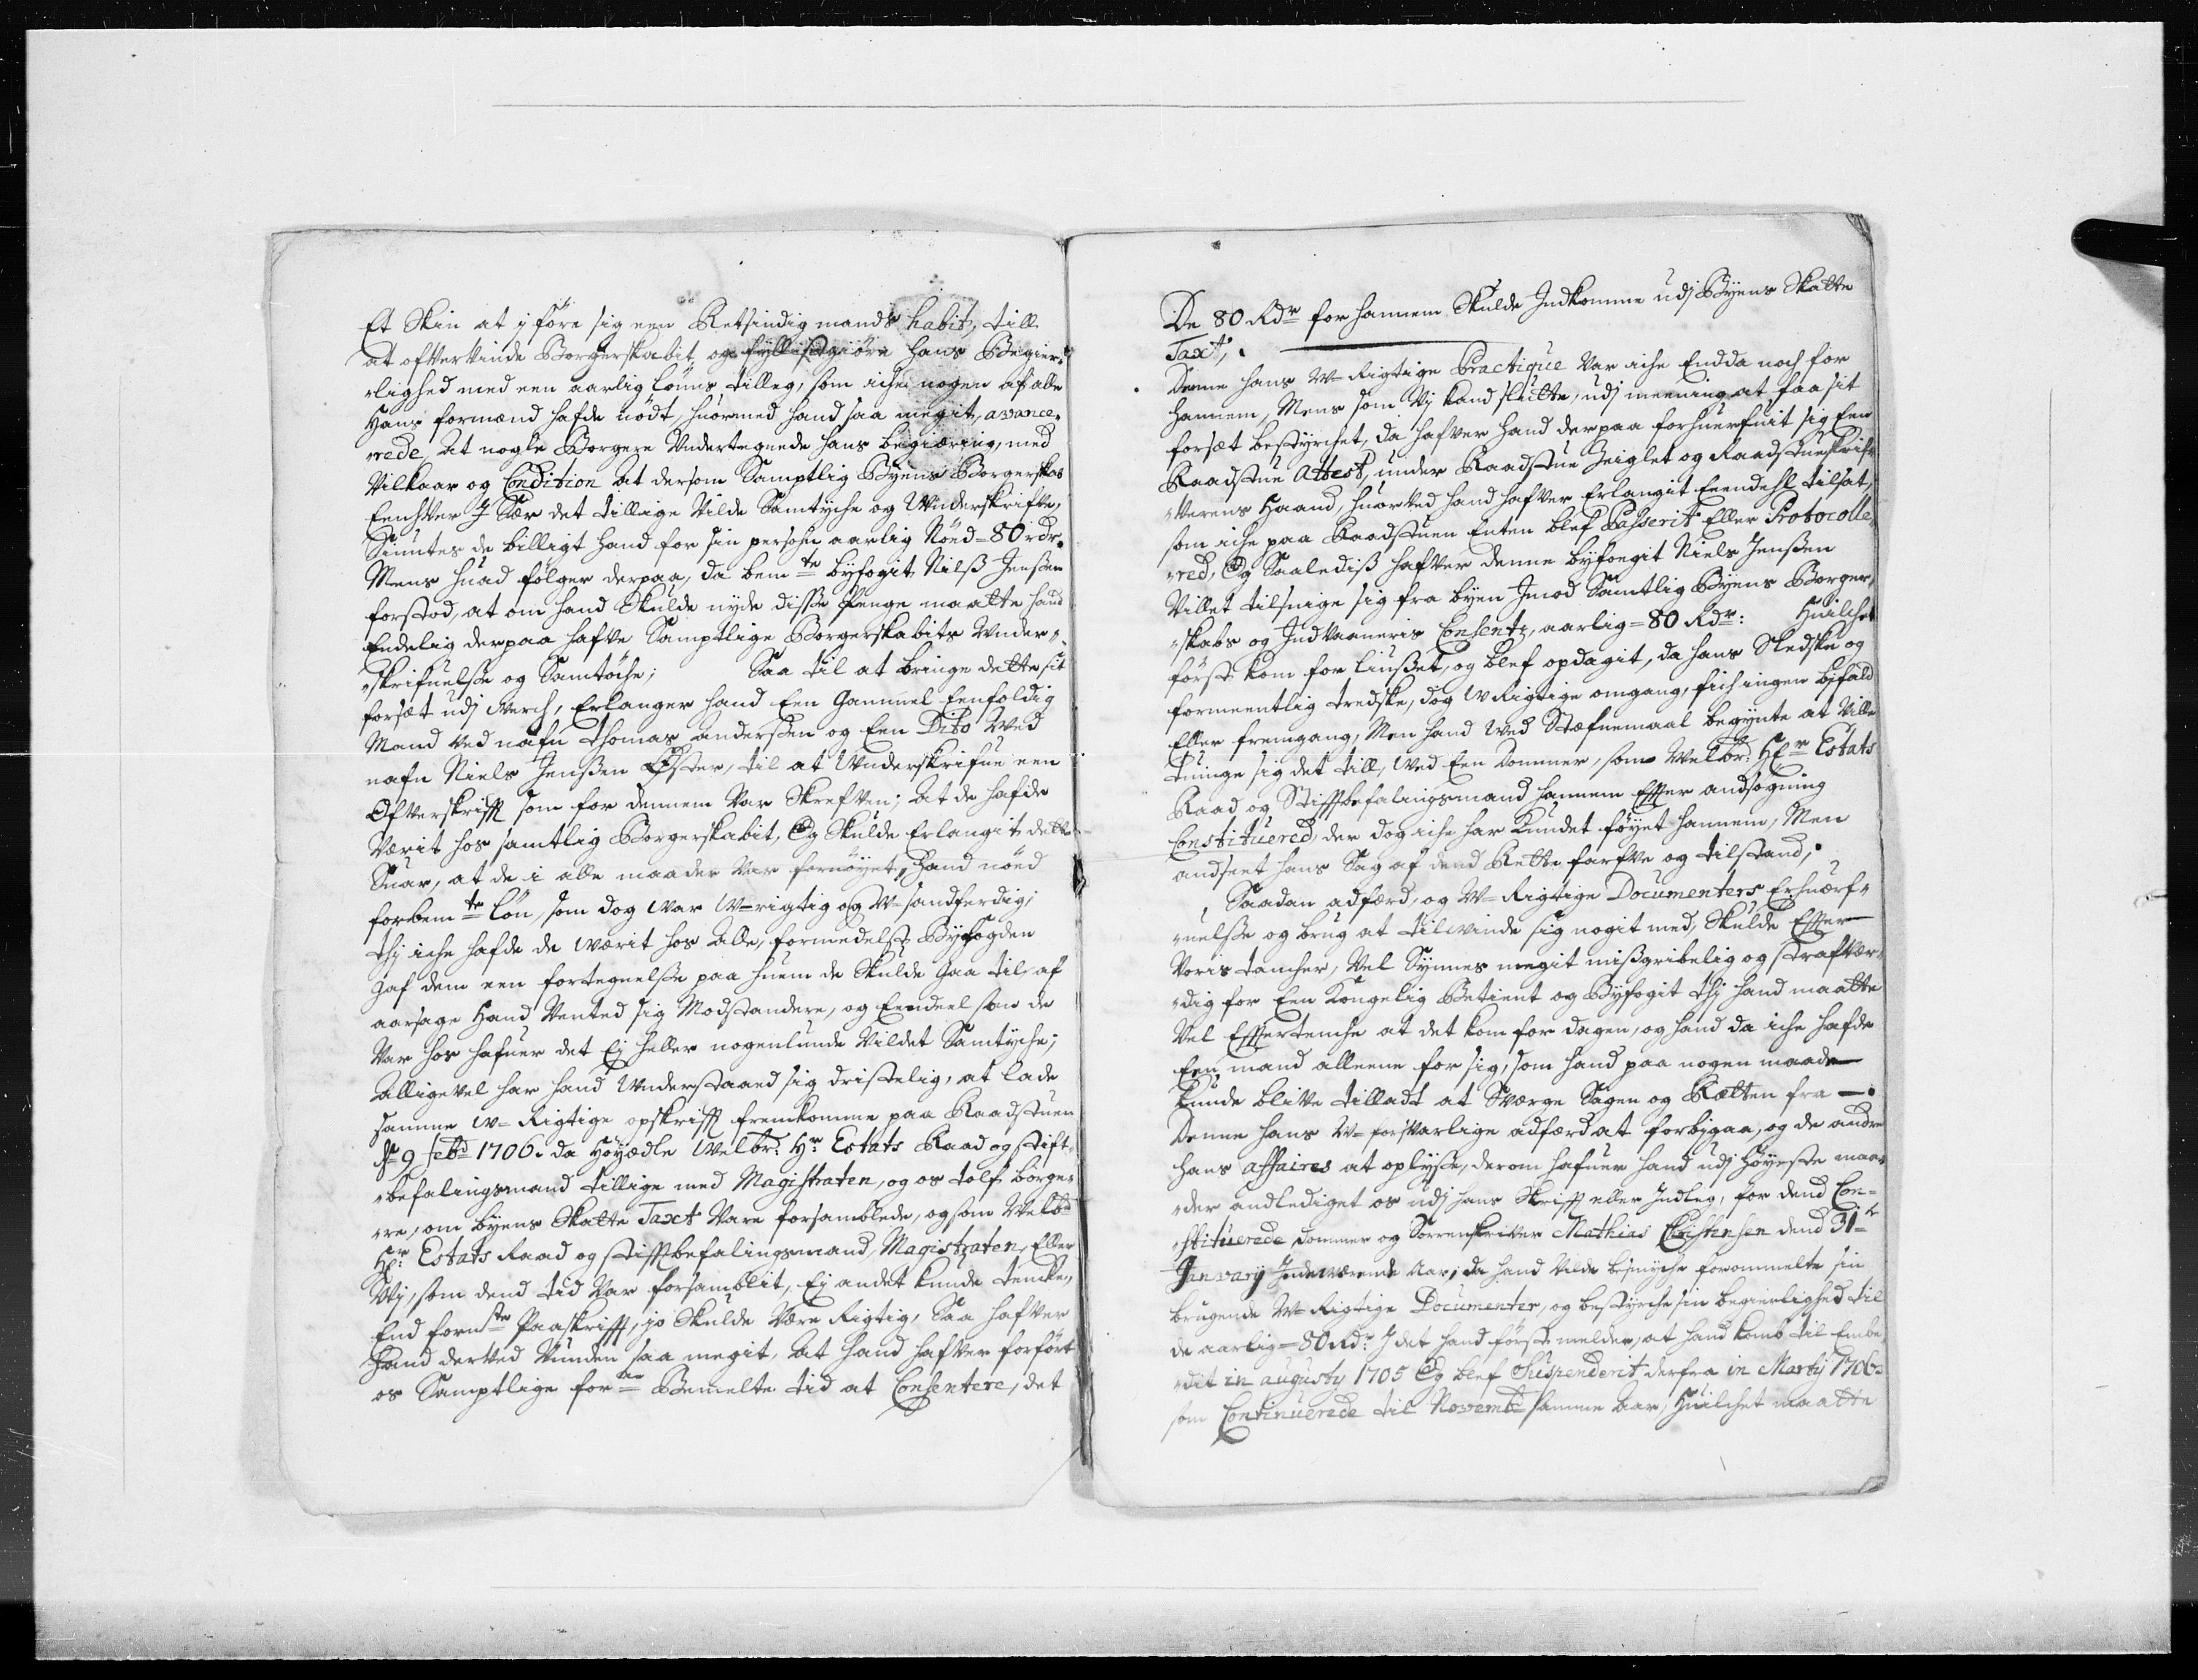 Et Skin at i före sig een Retsindig mands habit, till
at ofvervinde Borgerskabit og fyllistgiöre hans Begier-
-lighed med een aarlig lönns tilleg, som iche nogen af alle
Hans formænd hafde nödt, huormed hand saa megit, avance-
-rede, at nogle Borgere Undertegnede hans begiæring, med
Vilkaar og Condition at dersom Samptlig Byens Borgerskab
Eenhver J Sær det tillige Vilde Samtyche og Underskrifve,
Siuntes de billigt hand for sin persohn aarlig Nöed = 80 rdr.
Mens huad fölger derpaa, da bemte byfogit Nilß Jensen
forstod, at om hand Skulde nyde disse Penge maatte hand
Endelig derpaa hafve Samptlige Borgerskabits Under-
-skrifuelse og Samtöche; Saa til at bringe dette sit
forsæt udj Verch, Erlanger hand Een Gammel Eenfoldig
Mand ved nafn Thomas andersen og Een Dito Ved
nafn Niels Jensen Öster, til at Underskrifue een
Ofverskrifft som for dennem Var Skrefven; at de hafde
Værit hos samtlig Borgerskabit, Og Skulde Erlangit dette
Suar, at de i alle maader Var fornöyet, hand nöed
forbemte lön, som dog Var U-rigtig og U-sandferdig,
thj iche hafde de værit hos Alle, formedelst Byfogden
gaf dem een fortegnelse paa huem de Skulde gaa til, af
aarsage Hand Vented sig Modstandere, og Eendeel som de
Var hos hafuer det Ej heller nogenlunde Vildet Samtyche;
Alligevel har hand Understaaed sig dristelig, at lade
samme U-Rigtige opskrifft fremkomme paa Raadstuen
d. 9 feb. 1706. da Höyædle Velbr. Hr Estats Raad og Stift-
-befalingsmand tillige med Magistraten, og os tolf borge-
-re, om byens Skatte Taxt Vare forsamblede, og som Velb.
Hr. Estats Raad og Stiftbefalingsmand, Magistraten, Eller
Vj, som dend tid Var forsamblit, Ej andet kunde tencke,
End fornte Paaskrifft, jo Skulde Være Rigtig, Saa hafver
Hand derved Vunden saa megit, at hand hafver forfört
os Samptlige forne Bemelte tid at Consentere, det
De 80 Rdr for hannem Skulde Indkomme udj Byens Skatte
Taxt,.
Denne hans U-Rigtige Practique Var iche Endda noch for
hannem, Mens som Vj kand slutte, udj meening at faa sit
forsæt bestyrchet, da hafver hand derpaa forhuerfuit sig Een
Raadstue Attest, under Raadstue Zeiglet og Raadstueskrif-
-Verens Haand, huorved hand hafver Erlangit Eendehl tilsat,
som iche paa Raadstuen Enten blef Passerit Eller Protocolle-
-red, Og Saalediß hafver denne byfogit Niels Jensen
Villet tilsnige sig fra byen Imod Samtlig Byens Borger-
-skabs og Indvaaneris Consents, aarlig = 80 Rdr: Huilchet
först kom for liuset, og blef opdagit, da hans Sledske og
formeentlig tredske, dog U Rigtige omgang, fich ingen bifald
Eller fremgang, Men hand Ved Stæfnemaal begynte at Ville
tuinge sig det till, Ved Een Dommer, som Velbr: Hr Estats
Raad og Stiftbefalingsmand hannem Effter andsögning
Constituered, der dog iche har Kundet föyet hannem, Men
andseet hans Sag af dend Rette farfve og tilstand,
Saadan adfærd, og U-Rigtige Documenters Erhuerf-
-uelse og brug at tilvinde sig nogit med, Skulde Effter
Voris tancher, Vel Synnes megit mißgribelig og straffvær-
-dig for Een Kongelig Betient og Byfogit thj hand maatte
Vel Efftertenche at det kom for dagen, og hand da iche hafde
Een mand alleene for sig, som hand paa nogen maade
kunde blive tilladt at Sværge Sagen og Retten fra —.
Denne hans U-forsvarlige adfærd at forbigaa, og de andre
hans affaires at oplyse, derom hafuer hand udj Höyeste maa-
-der andlediget os udj hans Skrifft eller Indleg, for dend Con-
-stituerede Dommer og Sorrenskriver Mathias Christensen dend 31te
Januarij Indeværende Aar, da hand Vilde besmyche forommelte sin
brugende U-Rigtige Documenter, og bestyrche sin begierlighed til
de aarlig = 80 Rdr: J det hand först melder, at hand komb til Embe-
-dit in augusty 1705 Og blef Suspenderit derfra in Marty 1706
som Continuerede til Novemb. samme Aar, Huilchet maatte